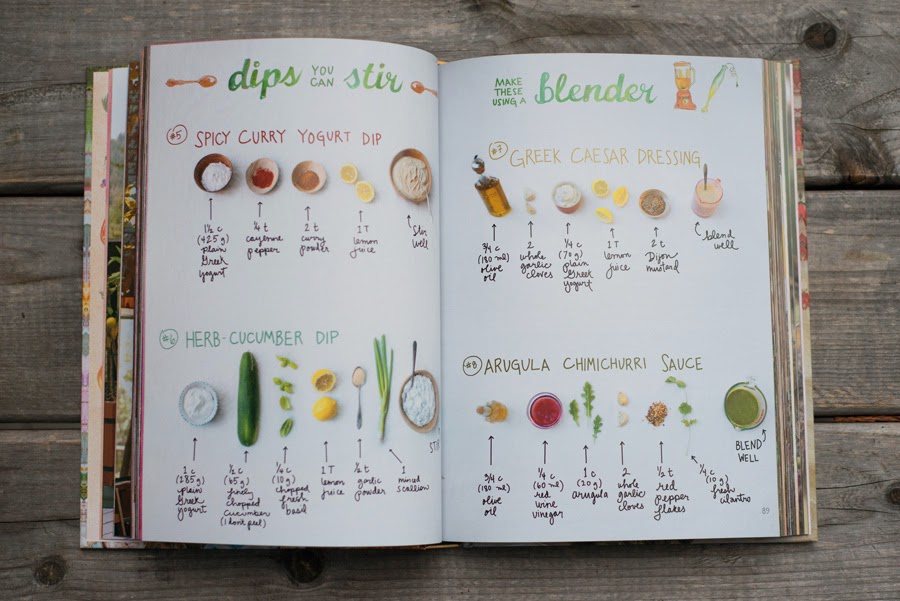 dips YOU CAN stir
#5 SPICY CURRY YOGURT DIP
1½ c
(425 g)
plain
Greek
yogurt
¼ t
cayenne
pepper
2 t
curry
powder
1 T
lemon
juice
Stir
well
#6 HERB-CUCUMBER DIP
1 c
(285 g)
plain
Greek
yogurt
½ c
(65 g)
finely
chopped
cucumber
(I don't peel)
¼ c
(10 g)
chopped
fresh
basil
1 T
lemon
juice
½ t
garlic
powder
1
minced
scallion
MAKE
THESE
USING A
blender
#7 GREEK CAESAR DRESSING
¾ c
(180 ml)
olive
oil
2
whole
garlic
cloves
¼ c
(70 g)
plain
Greek
yogurt
1 T
lemon
juice
2 t
Dijon
mustard
blend
well
#8 ARUGULA CHIMICHURRI SAUCE
¾ c
(180 ml)
olive
oil
¼ c
(60 ml)
red
wine
vinegar
1 c
(20 g)
arugula
2
whole
garlic
cloves
½ t
red
pepper
flakes
¼ c
(10 g)
fresh
cilantro
BLEND
WELL
89